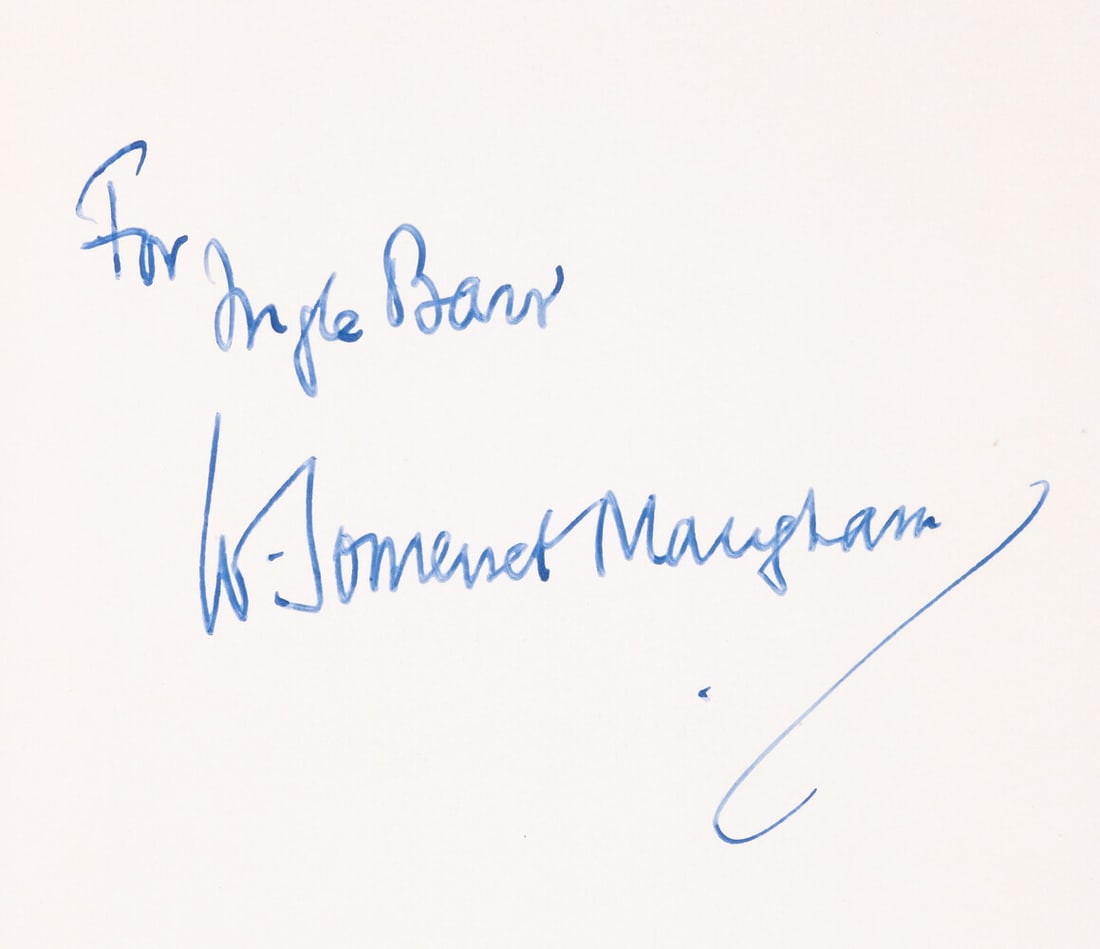 For Ingle Barr
W. Somerset Maugham